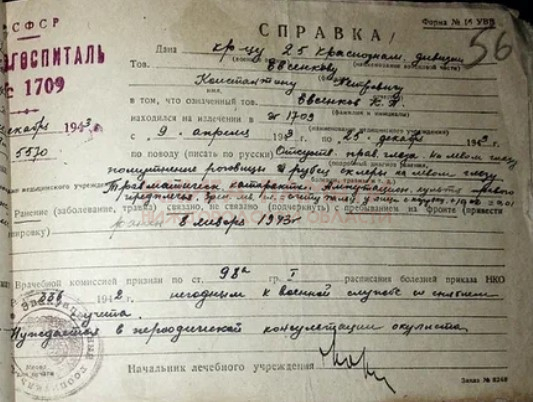 СФСР
СПРАВКА
Форма № 16 УВВ
56
ГОСПИТАЛЬ
1709
Дана кр-цу 25 краснознам. дивизии
Тов. Евсенкову
Константину Петровичу
в том, что означенный тов. Евсенков К. П.
находился на излечении в № 1709
декабря 1943
с 9 апреля 1943 по 25 декабря 1943
5570
по поводу (писать по русски) Отсутств. прав. глаза. На левом глазу
помутнение роговицы и рубец склеры на левом глазу.
Травматическ. катаракта. Ампутацион. культя правого
предплечья
Ранение (заболевание, травма) связано, не связано (подчеркнуть) с пребыванием на фронте (привести
в январе 1943 г
Врачебной комиссией признан по ст. 98а гр. I расписания болезней приказа НКО
1942 негодным к военной службе со снятием
с учета.
Нуждается в периодической консультации окулиста
Начальник лечебного учреждения